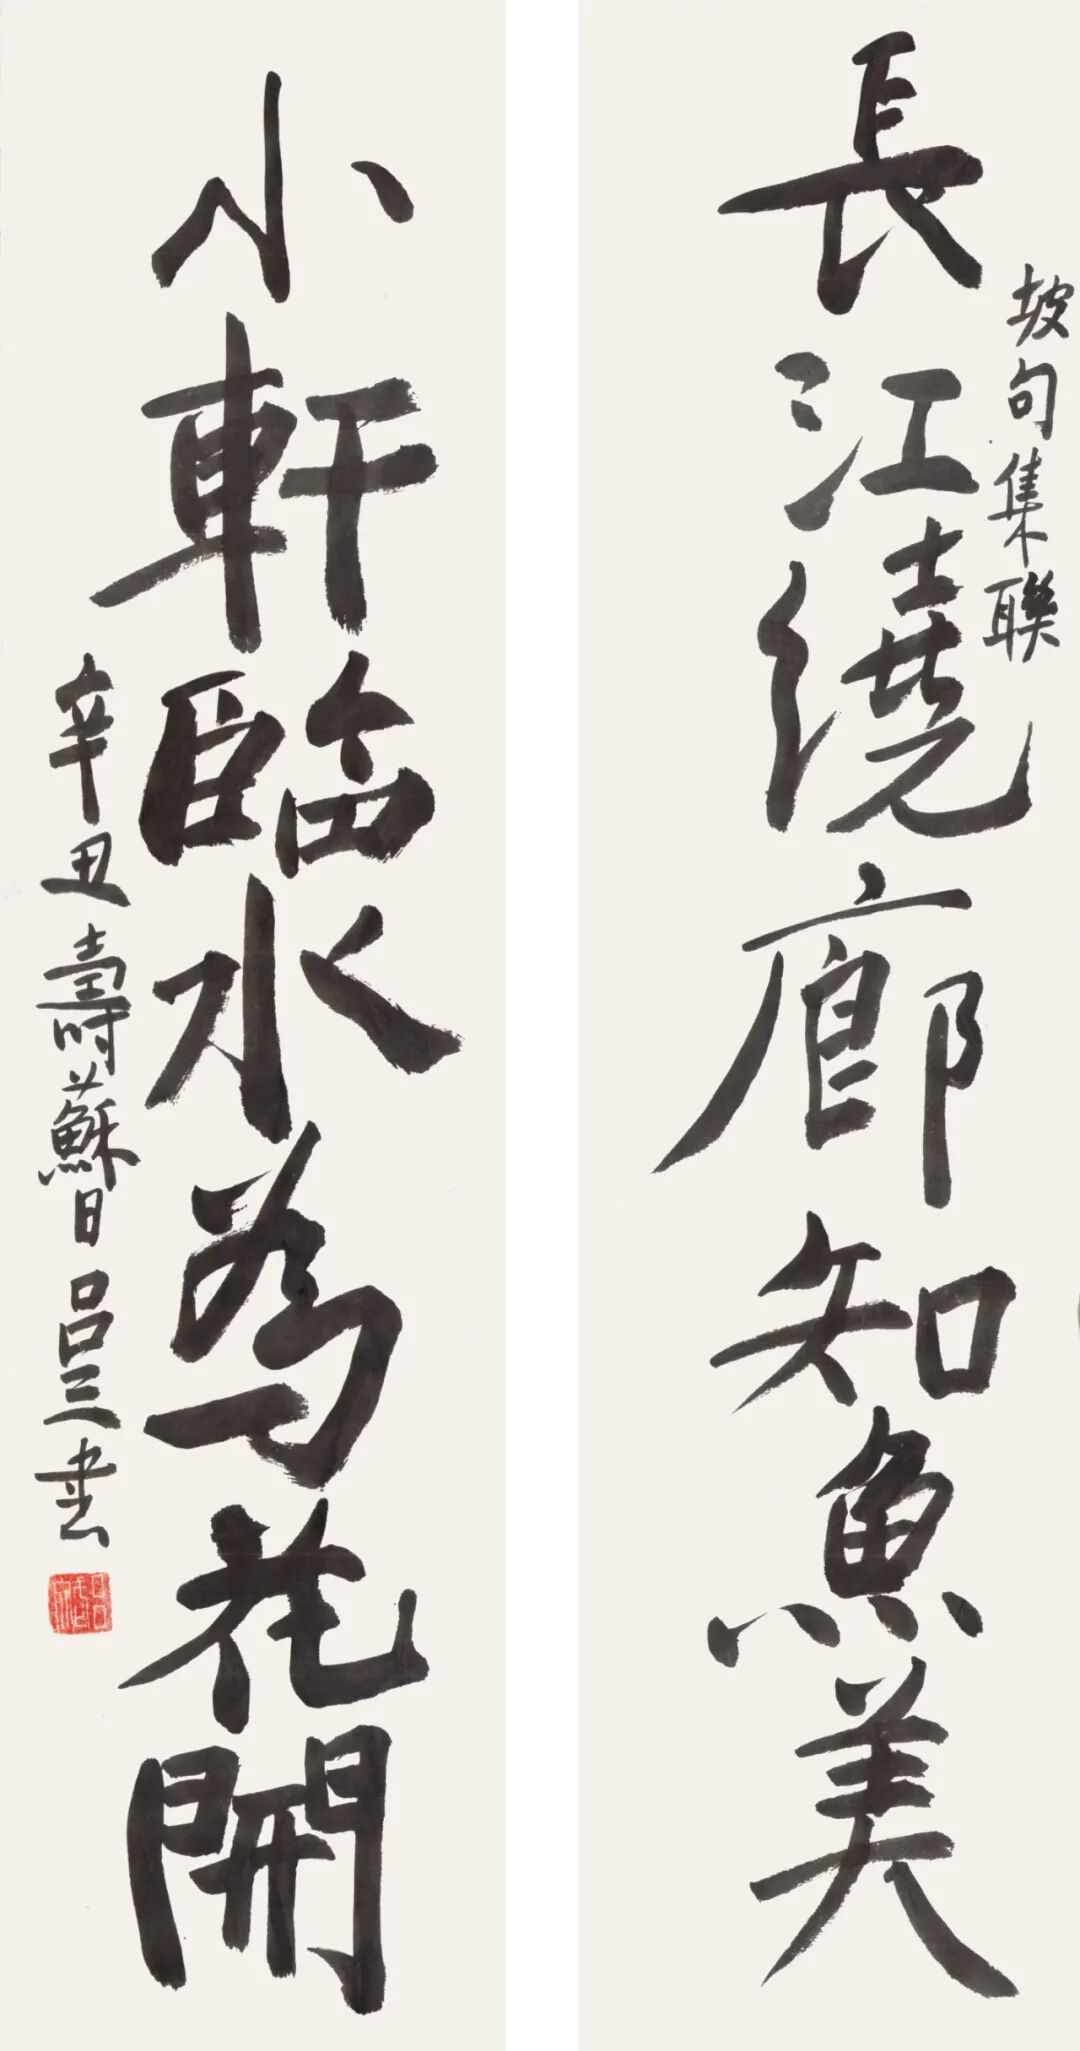 長江繞廊知魚美
坡句集聯
小軒臨水為花開
辛丑壽蘇日呂三書